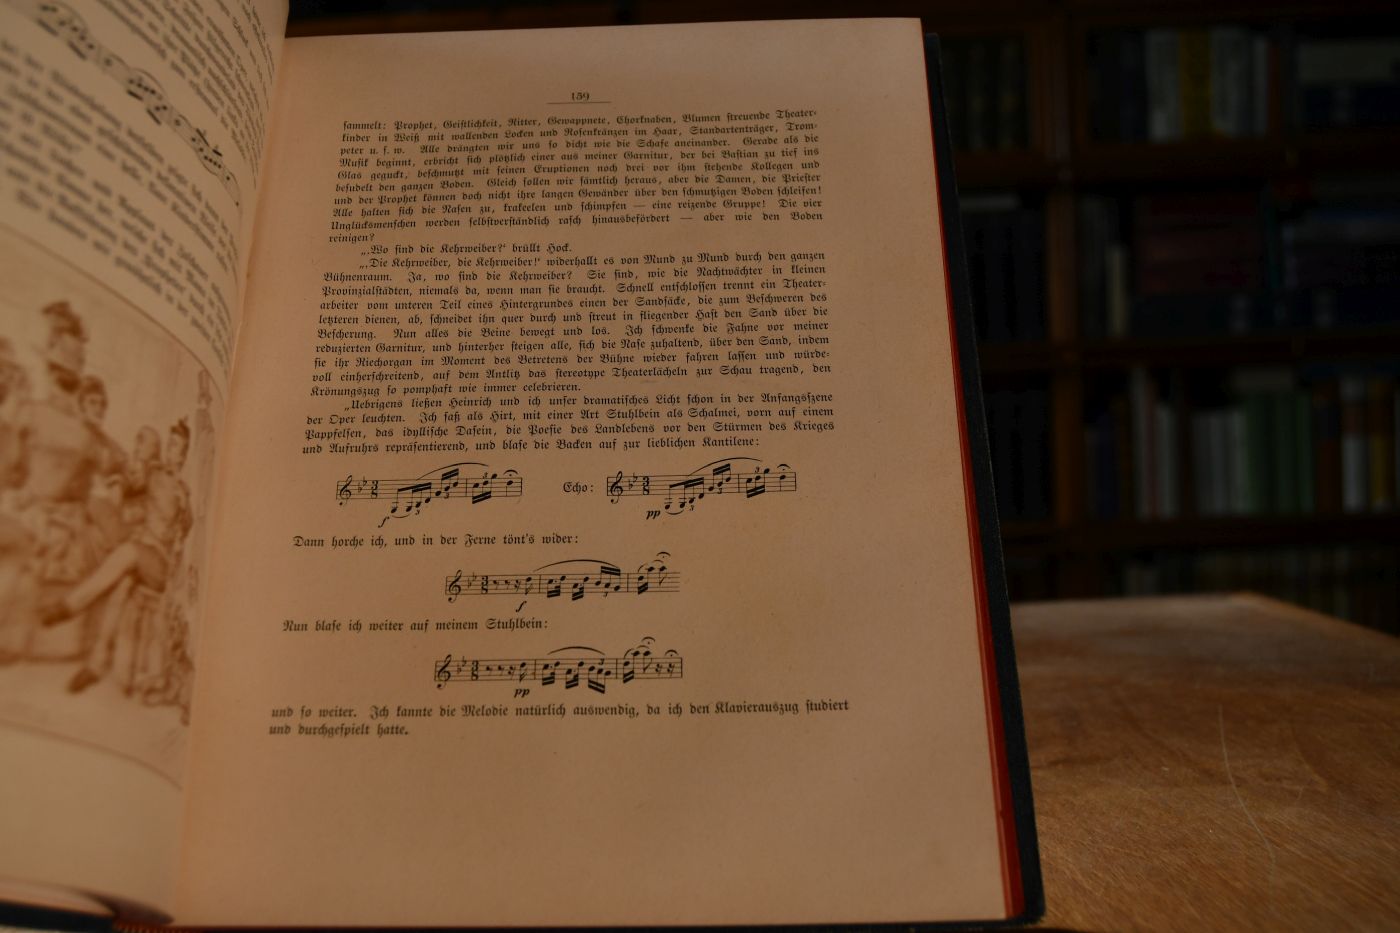 159
sammelt: Prophet, Geistlichkeit, Ritter, Gewappnete, Chorknaben, Blumen streuende Theater-
kinder in Weiß mit wallenden Locken und Rosenkränzen im Haar, Standartenträger, Trom-
peter u. s. w. Alle drängten wir uns so dicht wie die Schafe aneinander. Gerade als die
Musik beginnt, erbricht sich plötzlich einer aus meiner Garnitur, der bei Bastian zu tief ins
Glas geguckt, beschmutzt mit seinen Eruptionen noch drei vor ihm stehende Kollegen und
besudelt den ganzen Boden. Gleich sollen wir sämtlich heraus, aber die Damen, die Priester
und der Prophet können doch nicht ihre langen Gewänder über den schmutzigen Boden schleifen!
Alle halten sich die Nasen zu, krakeelen und schimpfen — eine reizende Gruppe! Die vier
Unglücksmenschen werden selbstverständlich rasch hinausbefördert — aber wie den Boden
reinigen?
„‚Wo sind die Kehrweiber?‘ brüllt Hock.
„‚Die Kehrweiber, die Kehrweiber!‘ widerhallt es von Mund zu Mund durch den ganzen
Bühnenraum. Ja, wo sind die Kehrweiber? Sie sind, wie die Nachtwächter in kleinen
Provinzialstädten, niemals da, wenn man sie braucht. Schnell entschlossen trennt ein Theater-
arbeiter vom unteren Teil eines Hintergrundes einen der Sandsäcke, die zum Beschweren des
letzteren dienen, ab, schneidet ihn quer durch und streut in fliegender Hast den Sand über die
Bescherung. Nun alles die Beine bewegt und los. Ich schwenke die Fahne vor meiner
reduzierten Garnitur, und hinterher steigen alle, sich die Nase zuhaltend, über den Sand, indem
sie ihr Riechorgan im Moment des Betretens der Bühne wieder fahren lassen und würde-
voll einherschreitend, auf dem Antlitz das stereotype Theaterlächeln zur Schau tragend, den
Krönungszug so pomphaft wie immer celebrieren.
„Uebrigens ließen Heinrich und ich unser dramatisches Licht schon in der Anfangsszene
der Oper leuchten. Ich saß als Hirt, mit einer Art Stuhlbein als Schalmei, vorn auf einem
Pappfelsen, das idyllische Dasein, die Poesie des Landlebens vor den Stürmen des Krieges
und Aufruhrs repräsentierend, und blase die Backen auf zur lieblichen Kantilene:
Echo:
f pp
Dann horche ich, und in der Ferne tönt's wider:
f
Nun blase ich weiter auf meinem Stuhlbein:
pp
und so weiter. Ich kannte die Melodie natürlich auswendig, da ich den Klavierauszug studiert
und durchgespielt hatte.